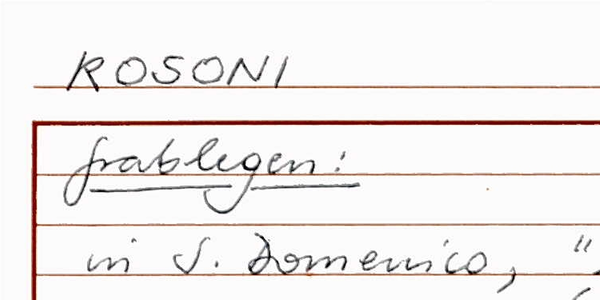 ROSONI
Grablegen:
in S. Domenico, "